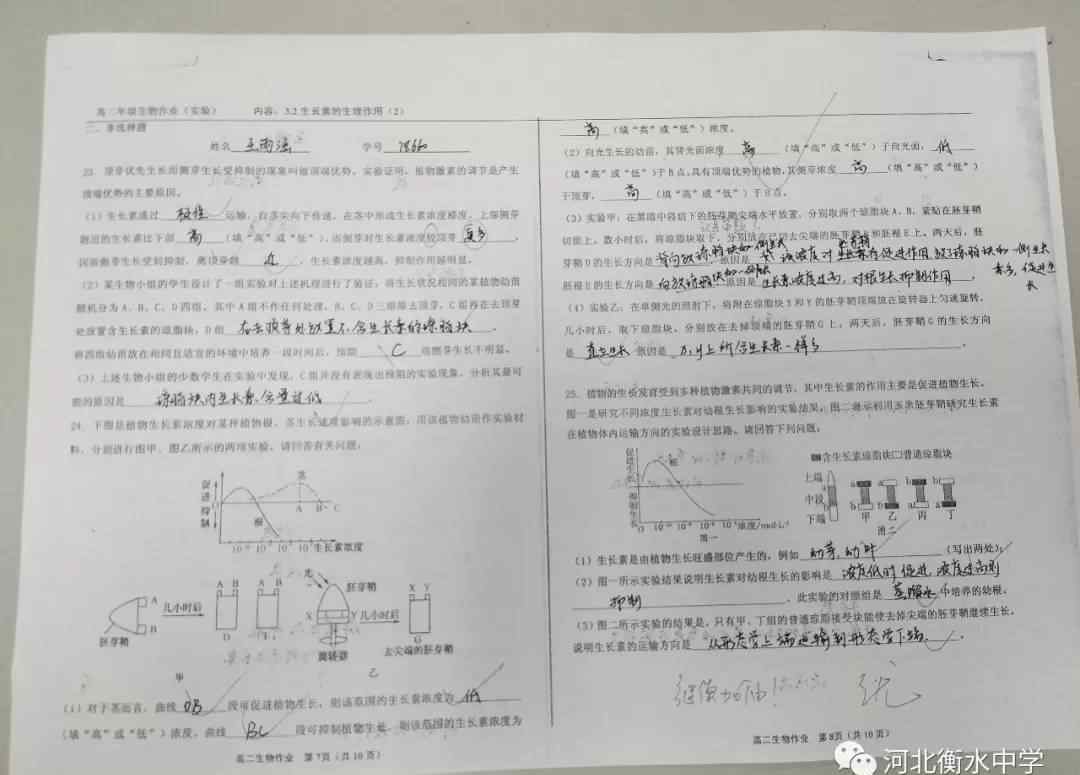 高二年级生物作业（实验） 内容：3.2生长素的生理作用（2）
二、非选择题
姓名 学号
23. 顶芽优先生长而侧芽生长受抑制的现象叫做顶端优势。实验证明，植物激素的调节是产生
顶端优势的主要原因。
（1）生长素通过 极性 运输，自茎尖向下传递，在茎中形成生长素浓度梯度，上部侧芽
附近的生长素比下部 高 （填“高”或“低”），而侧芽对生长素浓度较顶芽 敏感 ，
因而侧芽生长受到抑制，离顶芽越 近 ，生长素浓度越高，抑制作用越明显。
（2）某生物小组的学生设计了一组实验对上述机理进行了验证，将生长状况相同的某植物幼苗
随机分为A、B、C、D四组，其中A组不作任何处理，B、C、D三组除去顶芽，C组再在去顶芽
处放置含生长素的琼脂块，D组 在去顶芽处放置不含生长素的琼脂块 ，
将四组幼苗放在相同且适宜的环境中培养一段时间后，预期 C 组侧芽生长不明显。
（3）上述生物小组的少数学生在实验中发现，C组并没有表现出预期的实验现象，分析其最可
能的原因是 琼脂块内生长素含量过低 。
24. 下图是植物生长素浓度对某种植物根、茎生长速度影响的示意图，用该植物幼苗作实验材
料，分别进行图甲、图乙所示的两项实验。请回答有关问题：
促进 抑制
茎
O A B C
根
生长素浓度
A
B
胚芽鞘
几小时后
A B A B
D E
甲
光
胚芽鞘
X Y
旋转器
几小时后
X Y
G
去尖端的胚芽鞘
乙
（1）对于茎而言，曲线 OB 段可促进植物生长，则该范围的生长素浓度为 低
（填“高”或“低”）浓度。曲线 BC 段可抑制植物生长，则该范围的生长素浓度为
高二生物作业 第7页（共10页）
高 （填“高”或“低”）浓度。
（2）向光生长的幼苗，其背光面浓度 高 （填“高”或“低”）于向光面， 低
（填“高”或“低”）于B点。具有顶端优势的植物，其侧芽浓度 高 （填“高”或“低”）
于顶芽， 高 （填“高”或“低”）于B点。
（3）实验甲：在黑暗中将切下的胚芽鞘尖端水平放置，分别取两个琼脂块A、B，紧贴在胚芽鞘
切面上。数小时后，将琼脂块取下，分别放在已切去尖端的胚芽鞘D和胚根E上。两天后，胚
芽鞘D的生长方向是
胚根E的生长方向是
（4）实验乙：在单侧光的照射下，将附在琼脂块X和Y的胚芽鞘顶端放在旋转器上匀速旋转，
几小时后，取下琼脂块，分别放在去掉顶端的胚芽鞘G上，两天后，胚芽鞘G的生长方向
是 直立生长 原因是 X,Y上所含生长素一样多 。
25. 植物的生长发育受到多种植物激素共同的调节，其中生长素的作用主要是促进植物生长。
图一是研究不同浓度生长素对幼根生长影响的实验结果，图二显示利用玉米胚芽鞘研究生长素
在植物体内运输方向的实验设计思路。请回答下列问题：
促进生长 抑制生长
根
O 浓度/mol·L⁻¹
图一
含生长素琼脂块 普通琼脂块
上端
中段
下端
a b
甲 乙 丙 丁
图二
（1）生长素是由植物生长旺盛部位产生的，例如 幼芽,幼叶 （写出两处）。
（2）图一所示实验结果说明生长素对幼根生长的影响是 浓度低时促进,浓度过高则
抑制 。此实验的对照组是 蒸馏水 中培养的幼根。
（3）图二所示实验的结果是，只有甲、丁组的普通琼脂接受块能使去掉尖端的胚芽鞘继续生长，
说明生长素的运输方向是 从形态学上端运输到形态学下端 。
继续加油
高二生物作业 第8页（共10页）
河北衡水中学